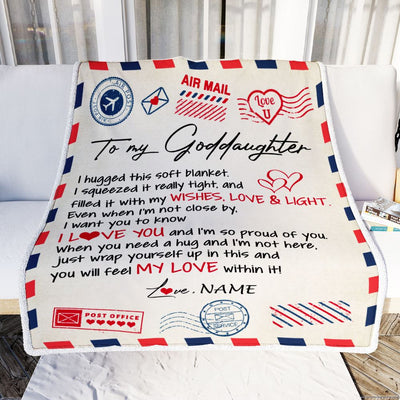 AIR MAIL
AIR POST
Love
U
To my Goddaughter
I hugged this soft blanket.
I squeezed it really tight, and
filled it with my WISHES, LOVE & LIGHT.
Even when I'm not close by,
I want you to know
I L❤VE YOU and I'm so proud of you.
When you need a hug and I'm not here,
just wrap yourself up in this and
you will feel MY LOVE within it!
Love, NAME
POST OFFICE
POSTAL
SERVICE